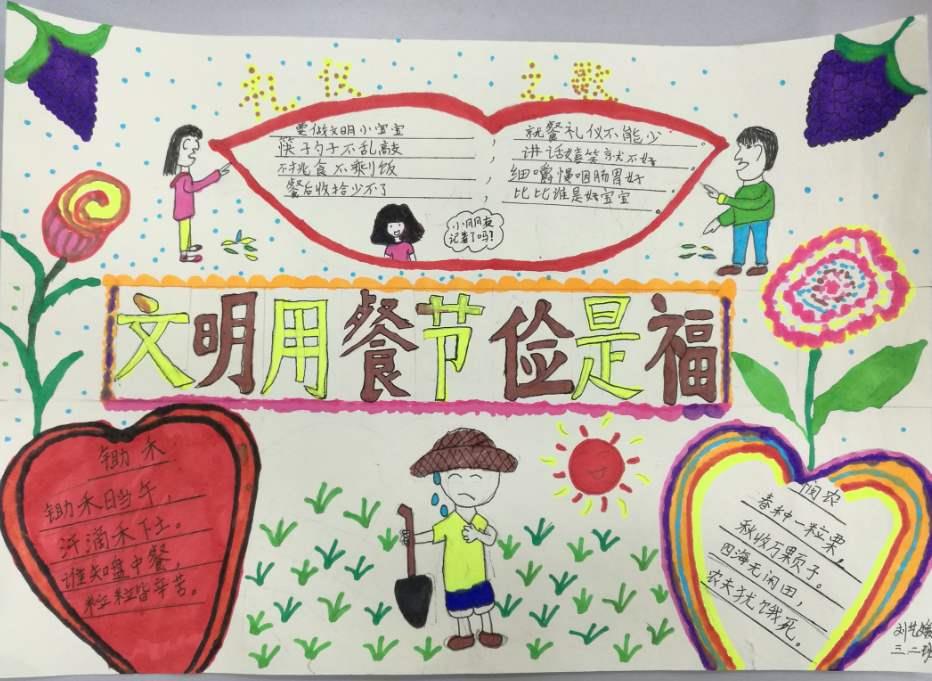 礼仪之歌
要做文明小宝宝，
筷子勺子不乱敲，
不挑食不剩饭，
餐后收拾少不了，
就餐礼仪不能少。
讲话嬉笑就不好。
细嚼慢咽肠胃好。
比比谁是好宝宝。
小朋友
记着了吗？
文明用餐节俭是福
锄禾
锄禾日当午，
汗滴禾下土。
谁知盘中餐，
粒粒皆辛苦。
悯农
春种一粒粟，
秋收万颗子。
四海无闲田，
农夫犹饿死。
三二班